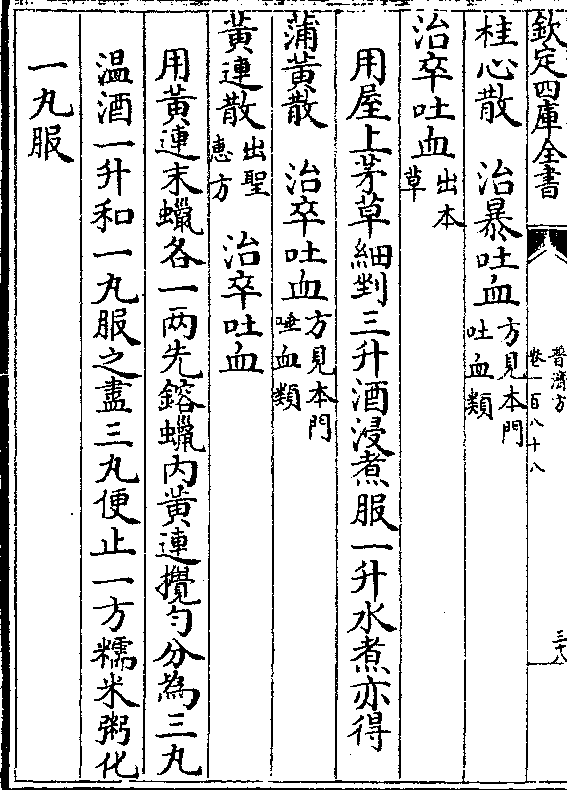 欽定四庫全書
普濟方
卷一百八十八
三十八
桂心散 治暴吐血方見本門吐血類
治卒吐血出本草
用屋上茅草細剉三升酒浸煮服一升水煮亦得
蒲黃散 治卒吐血方見本門唾血類
黃連散出聖惠方 治卒吐血
用黃連末蠟各一兩先鎔蠟內黃連攪勻分為三丸
温酒一升和一丸服之盡三丸便止一方糯米粥化
一丸服